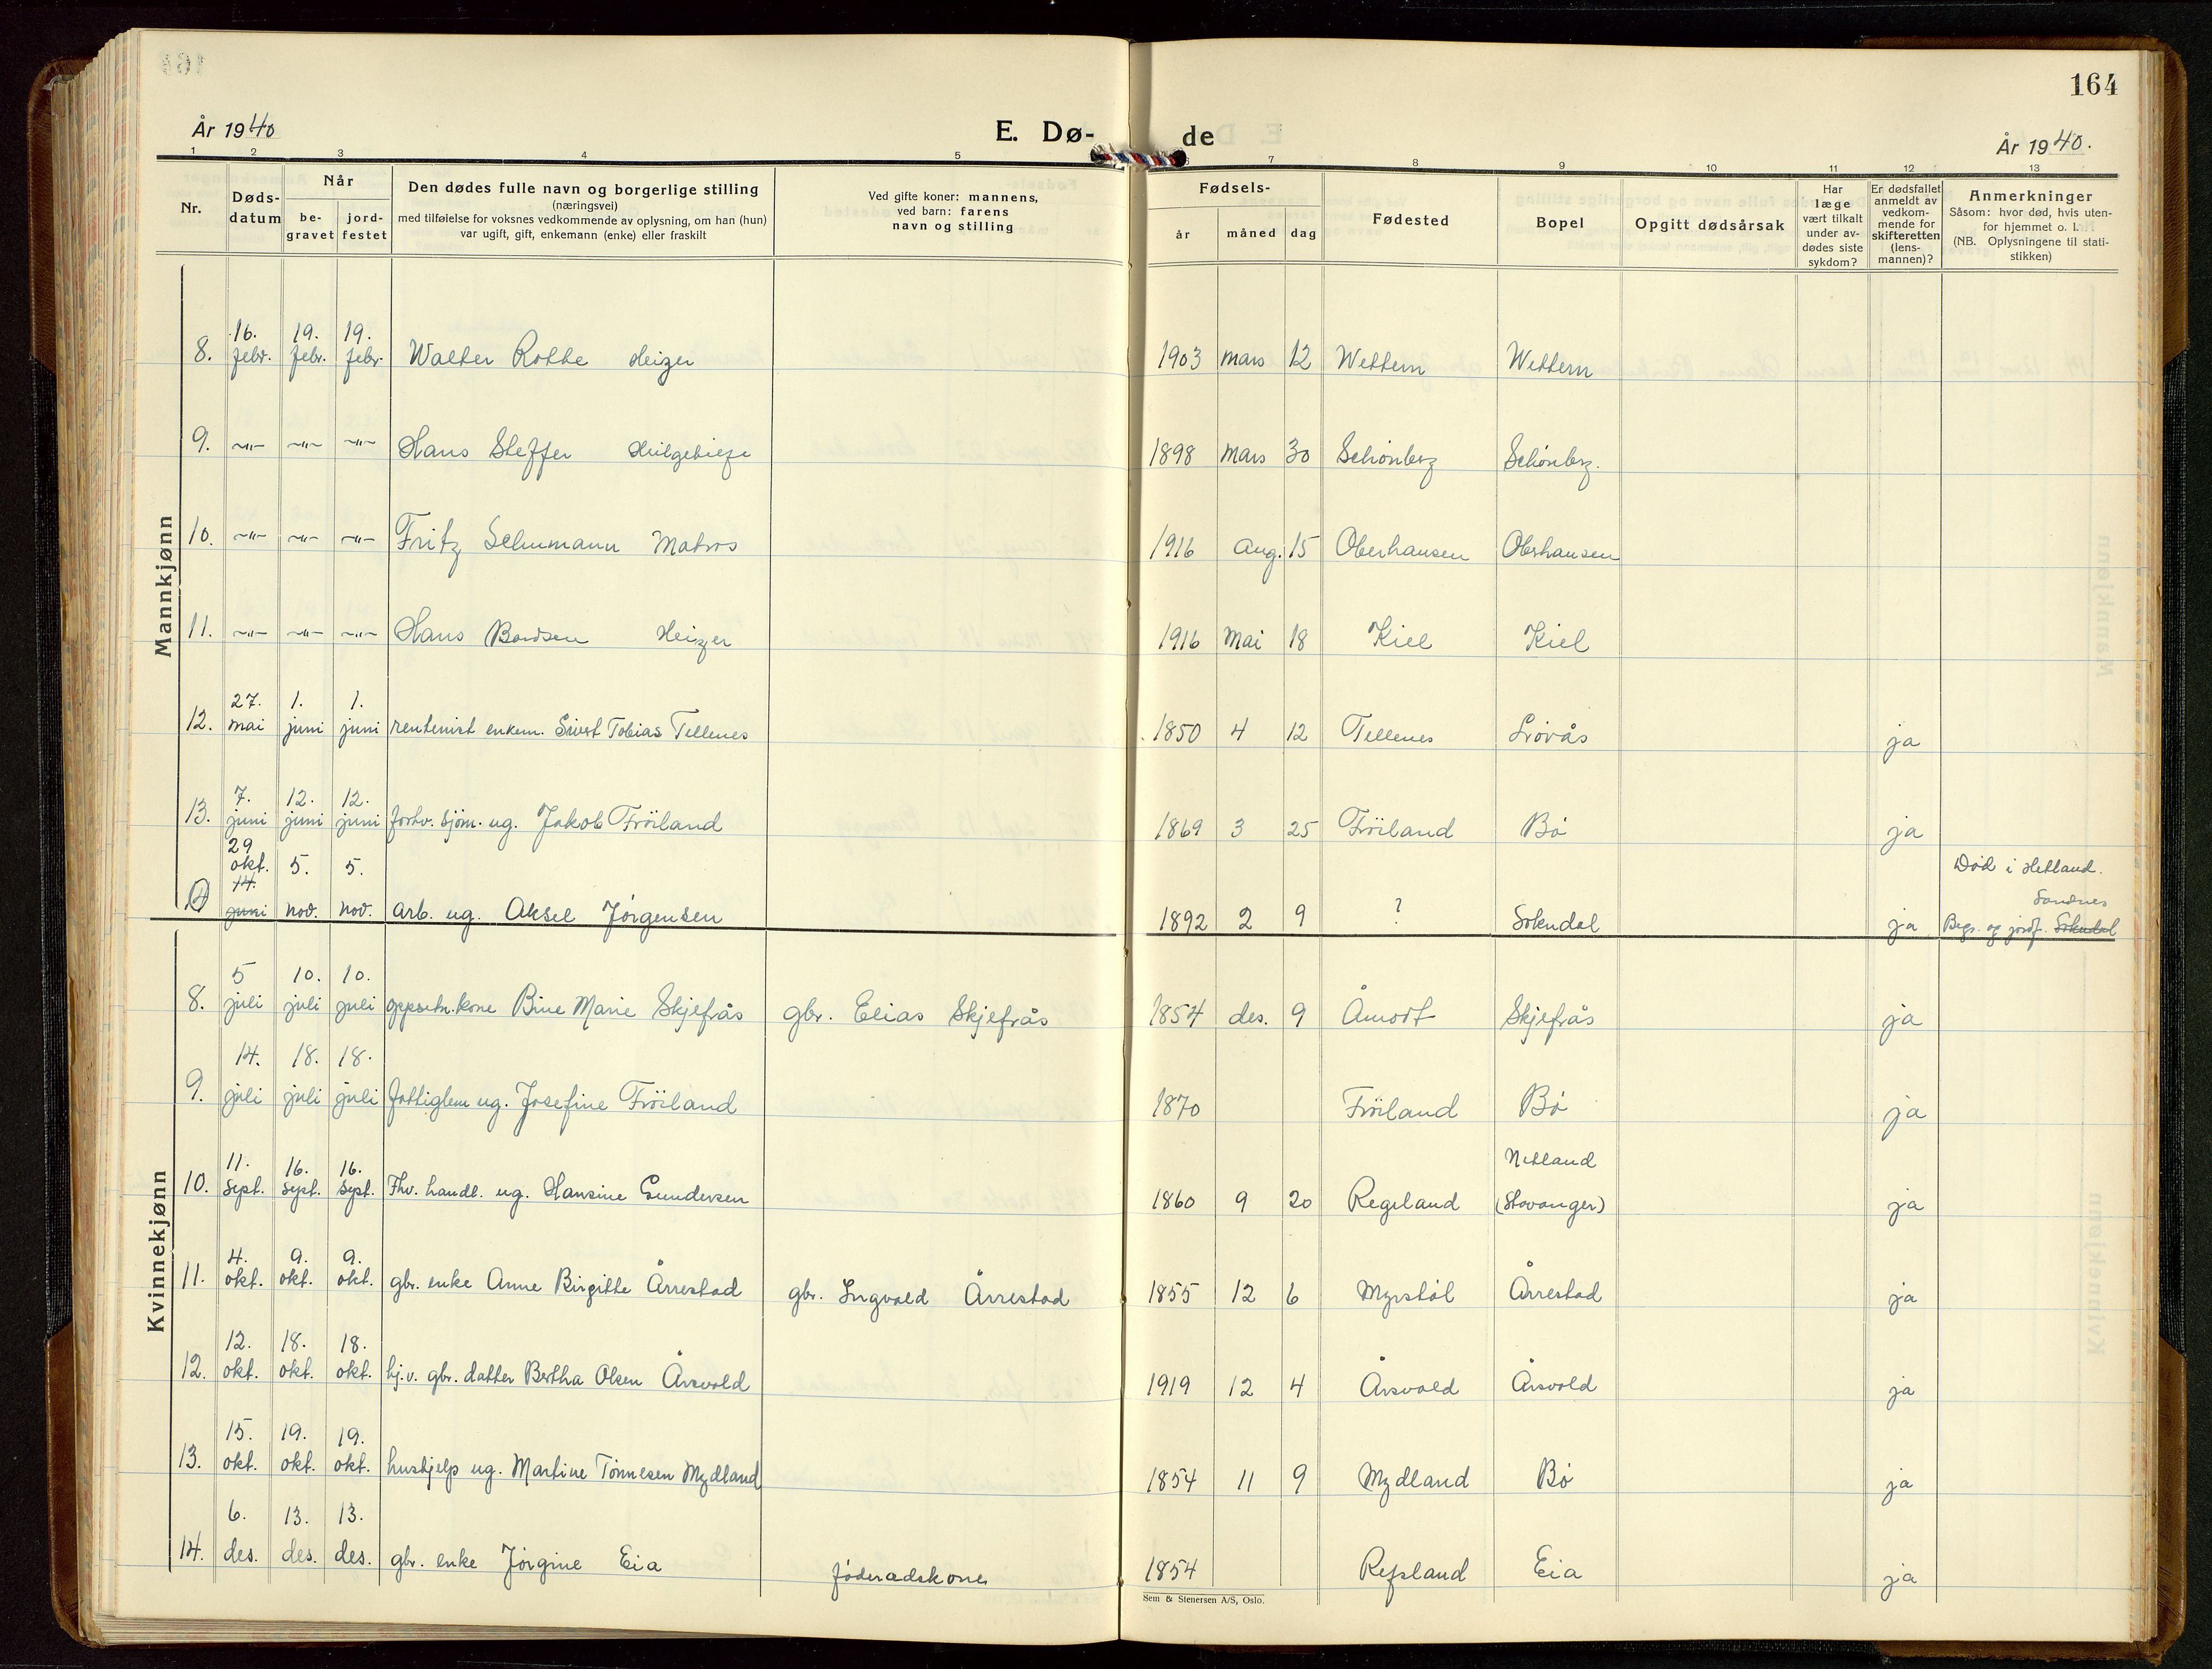 164
År 1940
E. Dø-
de
År 1940.
1 2 3 4 5 6 7 8 9 10 11 12 13
Nr.
Døds-
datum
Når
be-
gravet
jord-
festet
Den dødes fulle navn og borgerlige stilling
(næringsvei)
med tilføielse for voksnes vedkommende av oplysning, om han (hun)
var ugift, gift, enkemann (enke) eller fraskilt
Ved gifte koner: mannens,
ved barn: farens
navn og stilling
Fødsels-
år måned dag
Fødested
Bopel
Opgitt dødsårsak
Har
læge
vært tilkalt
under av-
dødes siste
sykdom?
Er dødsfallet
anmeldt av
vedkom-
mende for
skifteretten
(lens-
mannen)?
Anmerkninger
Såsom: hvor død, hvis uten-
for hjemmet o. l.
(NB. Oplysningene til stati-
stikken)
Mannkjønn
16. 19. 19.
8. febr. febr. febr. Walter Rothe Heizer 1903 mars 12 Wettern Wettern
9. -"- -"- -"- Hans Steffer 1898 mars 30 Schönberg Schönberg.
10. -"- -"- -"- Fritz Schumann Matros 1916 Aug. 15 Oberhausen Oberhausen
11. -"- -"- -"- Hans Bordsen Heizer 1916 Mai 18 Kiel Kiel
27. 1. 1.
12. mai juni juni rentenist enkem. Sivert Tobias Tellenes 1850 4 12 Tellenes Løvås ja
7. 12. 12.
13. juni juni juni forhv. sjøm. ug. Jakob Frøiland 1869 3 25 Frøiland Bø ja
29
okt. 5. 5. Død i Hetland.
14. Sandnes
14 juni nov. nov. arb. ug. Aksel Jørgensen 1892 2 9 ? Sokndal ja Begr. og jordf. Sokndal
Kvinnekjønn
5 10. 10.
8. juli juli juli gppsetn. kone Bine Marie Skjefrås gbr. Elias Skjefrås 1854 des. 9 Åmodt Skjefrås ja
14. 18. 18.
9. juli juli juli fattiglem ug. Josefine Frøiland 1870 Frøiland Bø ja
11. 16. 16. Netland
10. sept. sept. sept. Fhv. handl. ug. Hansine Gundersen 1860 9 20 Regeland (Stavanger) ja
4. 9. 9.
11. okt. okt. okt. gbr. enke Anne Birgitte Årrestad gbr. Ingvald Årrestad 1855 12 6 Myrstøl Årrestad ja
12. 18. 18.
12. okt. okt. okt. hj.v. gbr. datter Bertha Olsen Årsvold 1919 12 4 Årsvold Årsvold ja
15. 19. 19.
13. okt. okt. okt. hushjelp ug. Martine Tønnesen Mydland 1854 11 9 Mydland Bø ja
6. 13. 13.
14. des. des. des. gbr. enke Jørgine Eia føderådskone 1854 Refsland Eia ja
Sem & Stenersen A/S, Oslo.